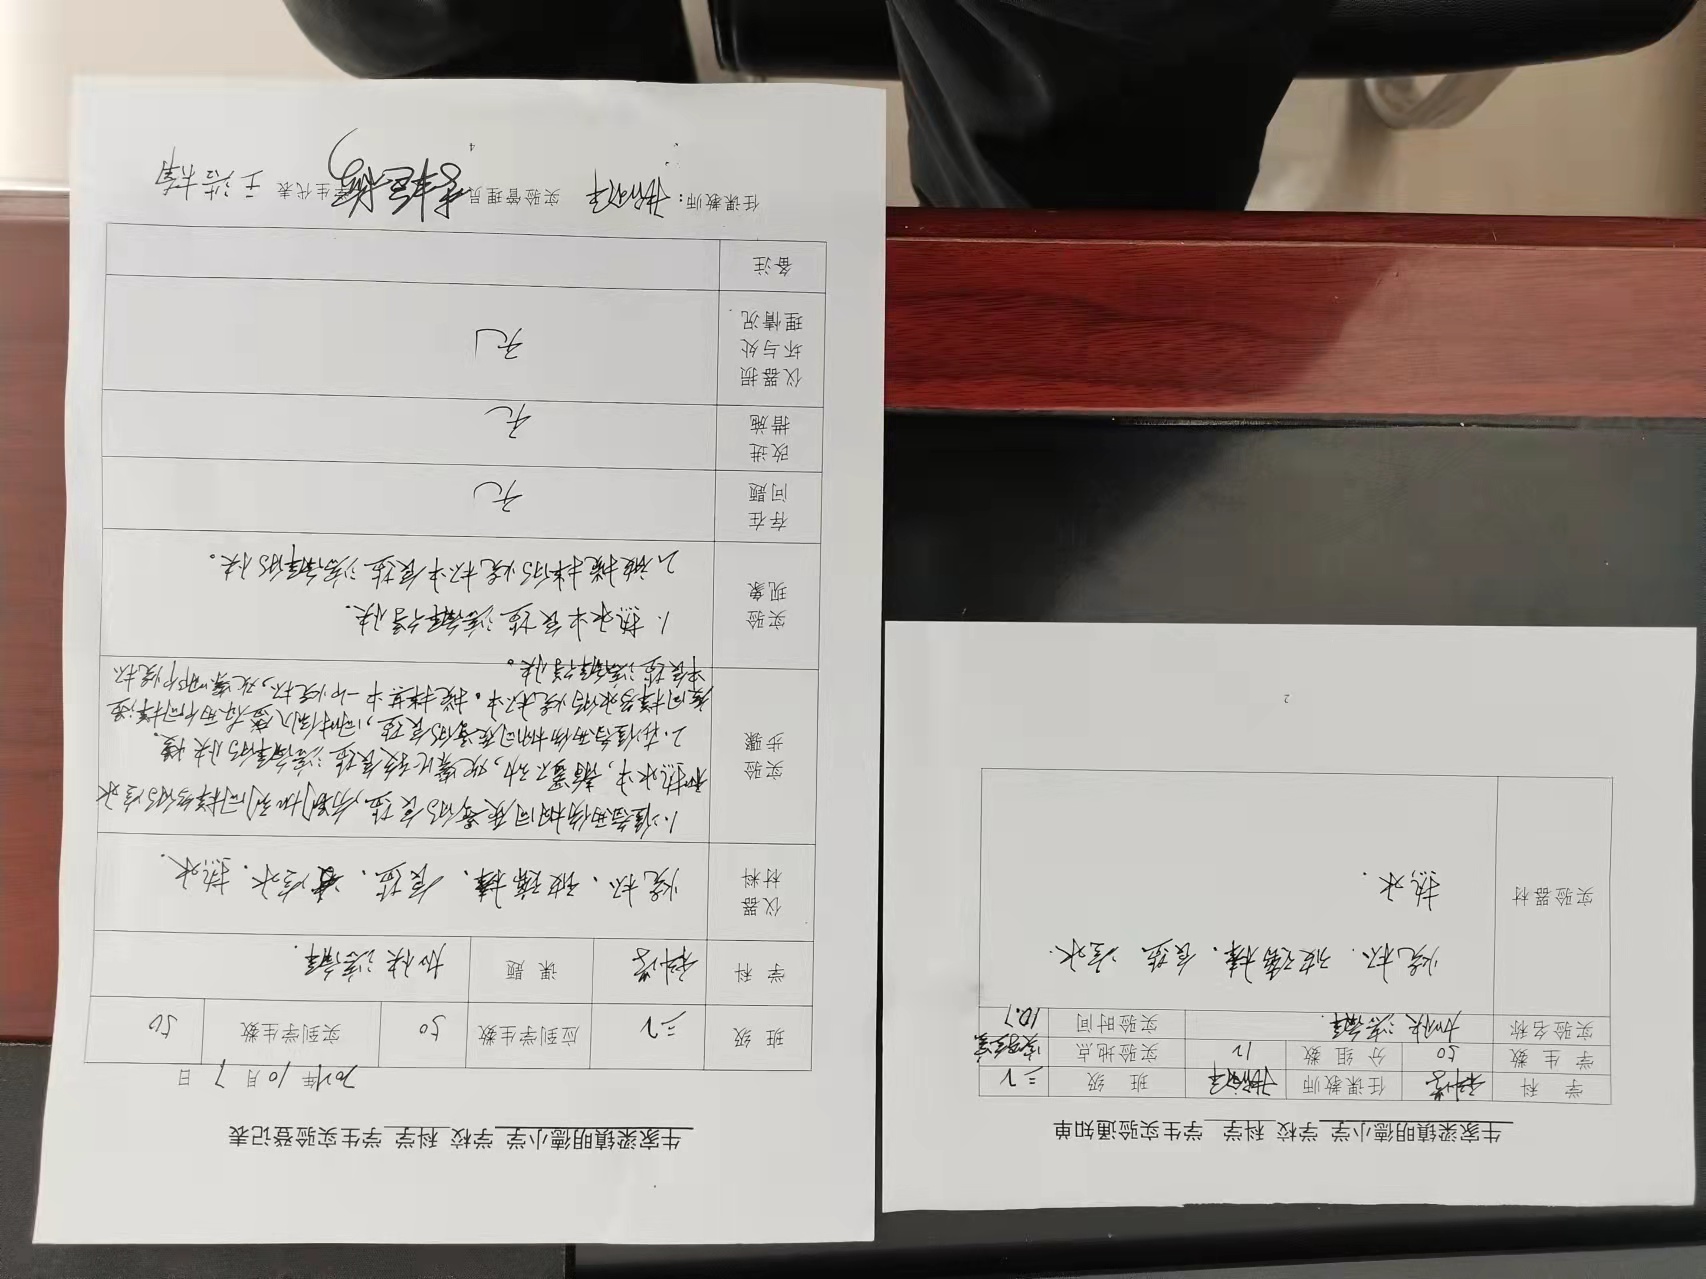 牛家梁镇明德小学 学校 科学 学生实验通知单
学 科 科学 任课教师 班 级 三2
学 生 数 50 分 组 数 12 实验地点 实验室
实验名称 加快溶解 实验时间 10.7
实验器材 烧杯. 玻璃棒. 食盐 冷水.
热水.
2
牛家梁镇明德小学 学校 科学 学生实验登记表
年 10 月 7 日
班 级 三2 应到学生数 50 实到学生数 50
学 科 科学 课 题 加快溶解.
仪器材料 烧杯. 玻璃棒. 食盐. 冷水. 热水.
实验步骤 1.准备两份相同质量的食盐,分别加到同样多的冷水
和热水中,静置不动,观察比较食盐溶解的快慢。
2.准备两份相同质量的食盐,同时倒入盛有两个同样温
度同样多水的烧杯中。搅拌其中一个烧杯,观察哪个烧杯
中食盐溶解得快。
实验现象 1.热水中食盐溶解得快.
2.被搅拌的烧杯中食盐溶解的快。
存在问题 无
改进措施 无
仪器损坏与处理情况 无
备注
任课教师: 实验管理员 学生代表 王浩
4